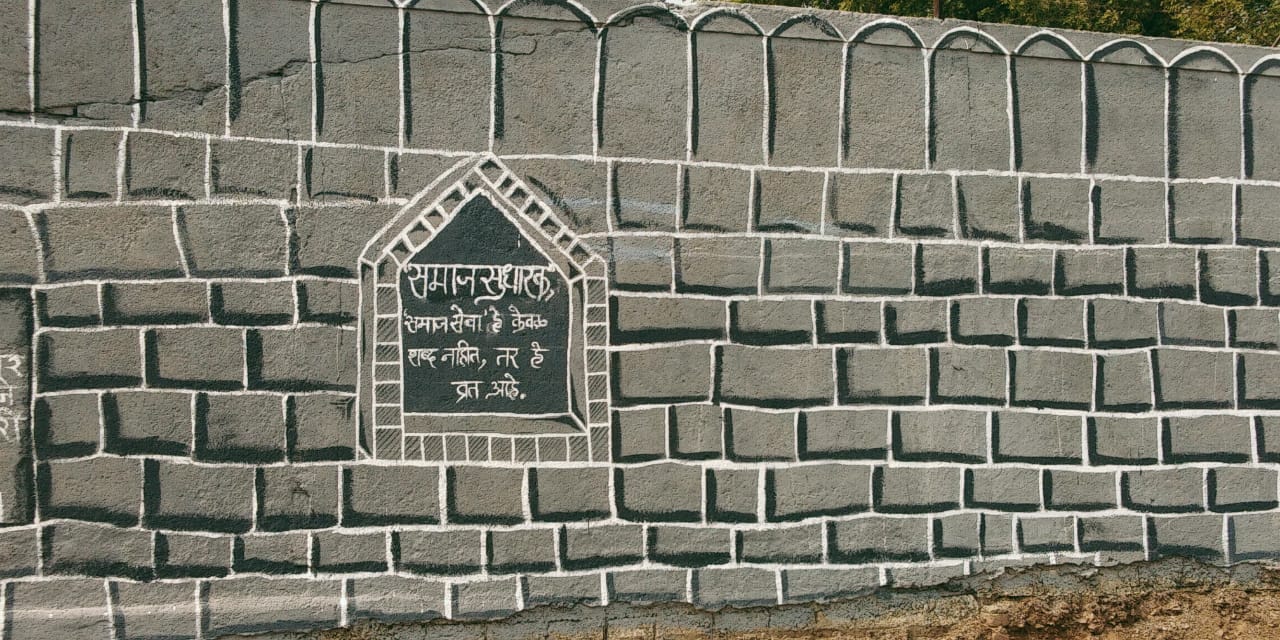 "समाज सुधारक,"
'समाज सेवा' हे केवळ
शब्द नाहीत, तर हे
व्रत आहे.